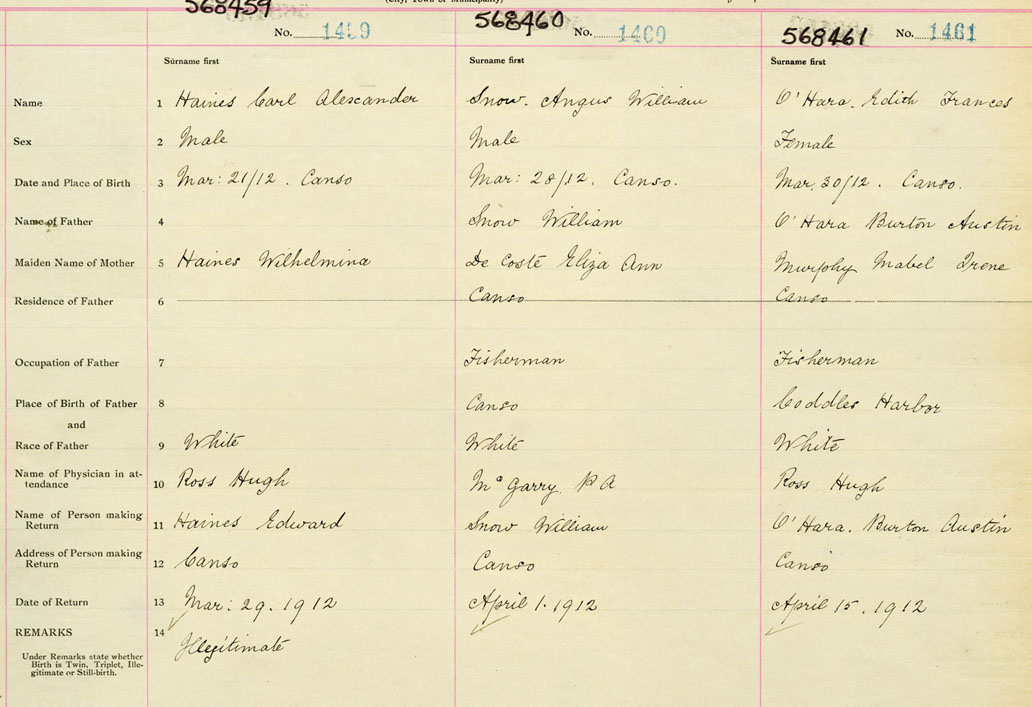 (City, Town or Municipality)
568459 568460 568461
No. 1459 No. 1460 No. 1461
Surname first Surname first Surname first
Name 1 Haines Carl Alexcander Snow. Angus William O'Hara. Edith Frances
Sex 2 Male Male Female
Date and Place of Birth 3 Mar: 21/12. Canso Mar: 28/12. Canso. Mar. 30/12. Canso.
Name of Father 4 Snow William O'Hara Burton Austin
Maiden Name of Mother 5 Haines Wilhelmina De Coste Eliza Ann Murphy Mabel Irene
Residence of Father 6 Canso Canso
Occupation of Father 7 Fisherman Fisherman
Place of Birth of Father 8 Canso Coddles Harbor
and
Race of Father 9 White White White
Name of Physician in at-
tendance 10 Ross Hugh Mc Garry. P A Ross Hugh
Name of Person making
Return 11 Haines Edward Snow William O'Hara. Burton Austin
Address of Person making
Return 12 Canso Canso Canso
Date of Return 13 Mar: 29. 1912 April 1. 1912 April 15. 1912
REMARKS 14 Illegitimate
Under Remarks state whether
Birth is Twin, Triplet, Ille-
gitimate or Still-birth.